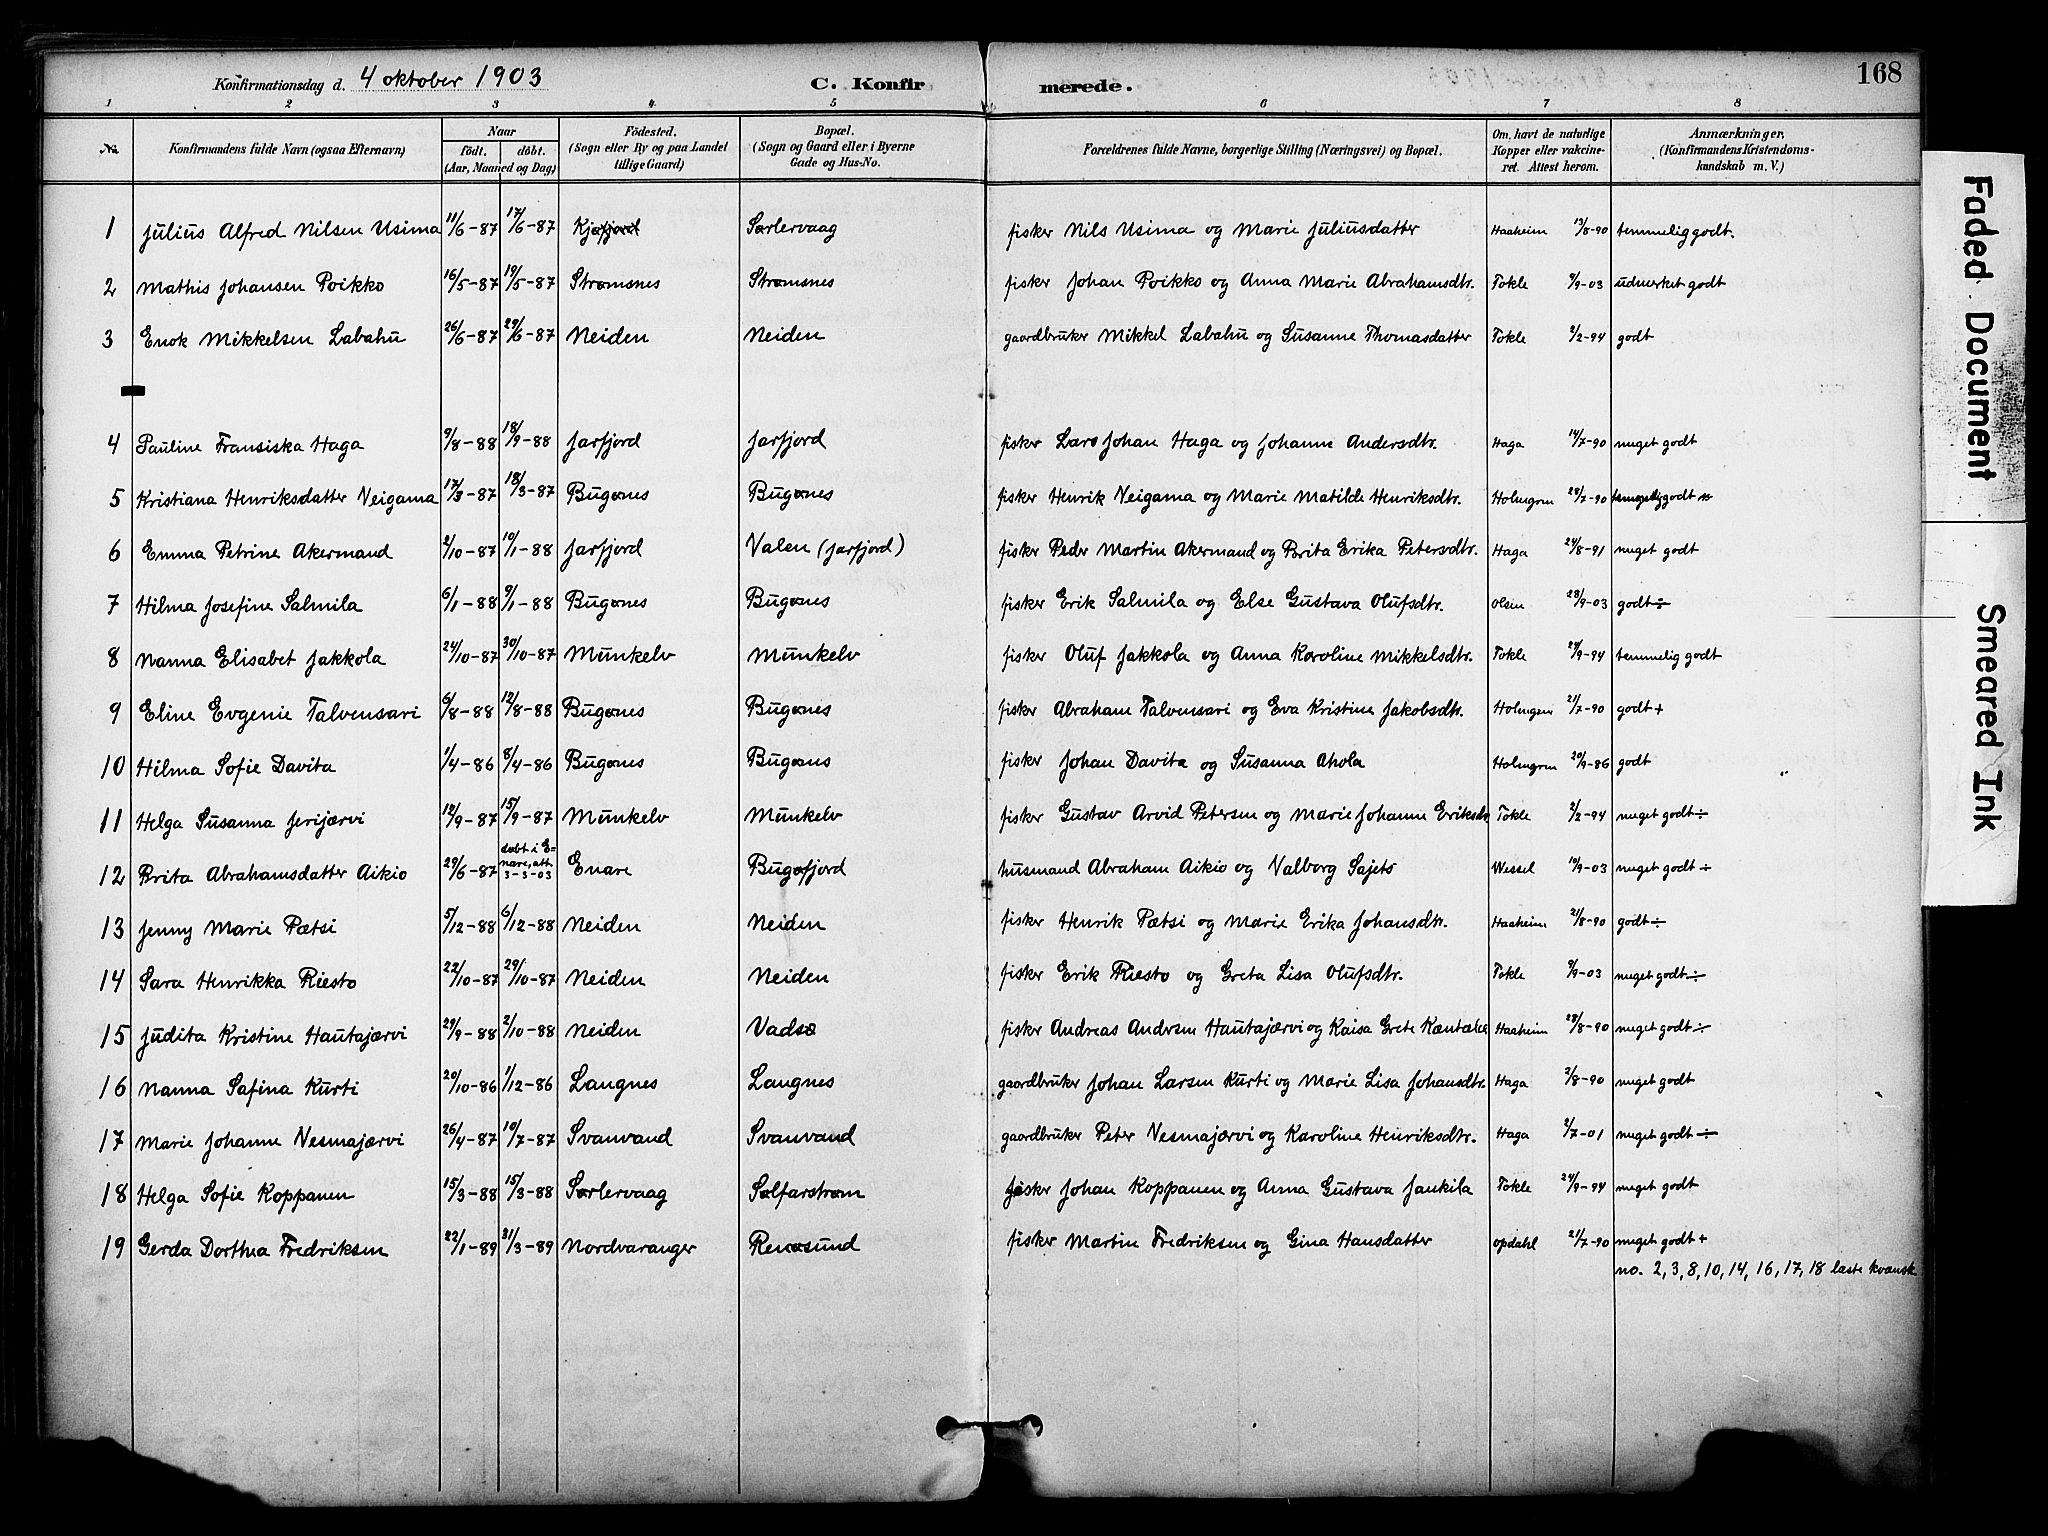 Konfirmationsdag d. 4 oktober 1903 C. Konfirmerede. 168
1 2 3 4 5 6 7 8
No. Konfirmandens fulde Navn (ogsaa Efternavn) Naar födt. döbt. (Aar, Maaned og Dag) Födested. (Sogn eller By og paa Landet tillige Gaard) Bopæl. (Sogn og Gaard eller i Byerne Gade og Hus-No. Forældrenes fulde Navne, borgerlige Stilling (Næringsvei) og Bopæl. Om, havt de naturlige Kopper eller vakcineret. Attest herom. Anmærkninger, (Konfirmandens Kristendomskundskab m. V.)
1 Julius Alfred Nilsen Usima 11/6-87 17/6-87 Kjøfjord Sørlervaag fisker Nils Usima og Marie Juliusdatter Haaheim 13/8-90 temmelig godt.
2 Mathis Johansen Poikko 16/5-87 19/5-87 Strømsnes Strømsnes fisker Johan Poikko og Anna Marie Abrahamsdtr. Tokle 9/9-03 udmerket godt
3 Enok Mikkelsen Labahü 26/6-87 29/6-87 Neiden Neiden gaardbruker Mikkel Labahü og Susanne Thomasdatter Tokle 2/2-94 godt
4 Pauline Fransiska Haga 9/8-88 18/9-88 Jarfjord Jarfjord fisker Lars Johan Haga og Johanne Andersdtr. Haga 14/7-90 meget godt
5 Kristiana Henriksdatter Neigama 17/3-87 18/3-87 Bugønes Bugønes fisker Henrik Neigama og Marie Matilde Henriksdtr. Holmgren 29/7-90 godt
6 Emma Petrine Akermand 2/10-87 10/1-88 Jarfjord Valen (Jarfjord) fisker Peder Martin Akermand og Brita Erika Petersdtr. Haga 24/8-91 meget godt
7 Hilma Josefine Salmila 6/1-88 9/1-88 Bugønes Bugønes fisker Erik Salmila og Else Gustava Olufsdtr. Olsen 28/9-03 godt÷
8 Nanna Elisabet Jakkola 24/10-87 30/10-87 Munkelv Munkelv fisker Oluf Jakkola og Anna Karoline Mikkelsdtr. Tokle 24/9-94 temmelig godt
9 Eline Evgenie Talvensari 6/8-88 12/8-88 Bugønes Bugønes fisker Abraham Talvensari og Eva Kristine Jakobsdtr. Holmgren 21/7-90 godt+
10 Hilma Sofie Davita 1/4-86 8/4-86 Bugønes Bugønes fisker Johan Davita og Susanna Ahola Holmgren 20/9-86 godt
11 Helga Susanna Jerijærvi 12/9-87 15/9-87 Munkelv Munkelv fisker Gustav Arvid Petersen og Marie Johanne Eriksdtr Tokle 2/2-94 meget godt÷
12 Brita Abrahamsdatter Aikio 29/6-87 døbt i Enare, att. 3-3-03 Enare Bugøfjord husmand Abraham Aikio og Valborg Sajets Wessel 10/9-03 meget godt÷
13 Jenny Marie Pætsi 5/12-88 6/12-88 Neiden Neiden fisker Henrik Pætsi og Marie Erika Johansdtr. Haaheim 21/8-90 godt÷
14 Sara Henrikka Riesto 22/10-87 29/10-87 Neiden Neiden fisker Erik Riesto og Greta Lisa Olufsdtr. Tokle 9/9-03 meget godt÷
15 Judita Kristine Hautajærvi 29/9-88 2/10-88 Neiden Vadsø fisker Andreas Andersen Hautajærvi og Kaisa Grete Haaheim 28/8-90 meget godt÷
16 Nanna Safina Kurti 20/10-86 1/12-86 Langnes Langnes gaardbruker Johan Larsen Kurti og Marie Lisa Johansdtr. Haga 2/8-90 meget godt
17 Marie Johanne Nesmajærvi 26/4-87 10/7-87 Svanvand Svanvand gaardbruker Peter Nesmajærvi og Karoline Henriksdtr. Haga 2/7-01 meget godt÷
18 Helga Sofie Koppanen 15/3-88 15/3-88 Sørlervaag Sølfarstrøm fisker Johan Koppanen og Anna Gustava Jankila Tokle 24/9-94 meget godt
19 Gerda Dorthea Fredriksen 22/1-89 31/3-89 Nordvaranger Renøsund fisker Martin Fredriksen og Gina Hansdatter Opdahl 21/7-90 meget godt+
no. 2, 3, 8, 10, 14, 16, 17, 18 læste kvænsk
Faded Document
Smeared Ink